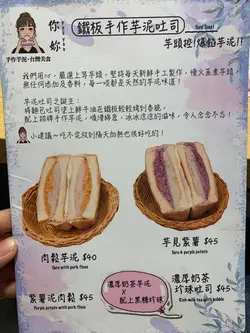 你妳
YEN TOMO
鐵板手作芋泥吐司
手作芋泥·台灣美食
芋頭控!爆餡芋泥!!
我們用心,嚴選上等芋頭,堅持每天新鮮手工製作,慢火蒸煮芋頭
無任何添加及香料,每一吱都是天然的芋泥味道!
芋泥吐司之誕主:
將麵包吐司塗上鮮牛油在鐵板輕輕烤到香脆,
配上招牌手作芋泥,順滑綿密,冰冰涼涼的滋味,令人念念不忘!
小建議~吃不完放到隔天加熱也很好吃的!
肉鬆芋泥 $40
Taro with pork floss
芋見紫薯 $45
Taro & purple potato
紫薯泥肉鬆 $45
Purple potato with pork floss
濃厚奶茶芋泥
X
配上黑糖珍珠
濃厚奶茶
珍珠吐司 $45
Rich milk tea with bubble